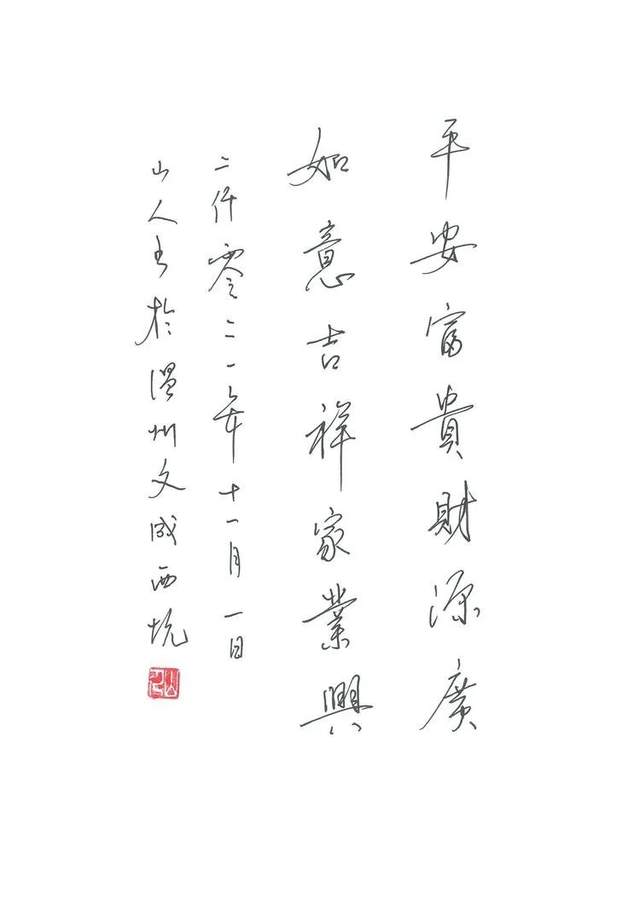 平安富貴財源廣
如意吉祥家業興
二仟零二一年十一月一日
山人書於溫州文成西坑
山人